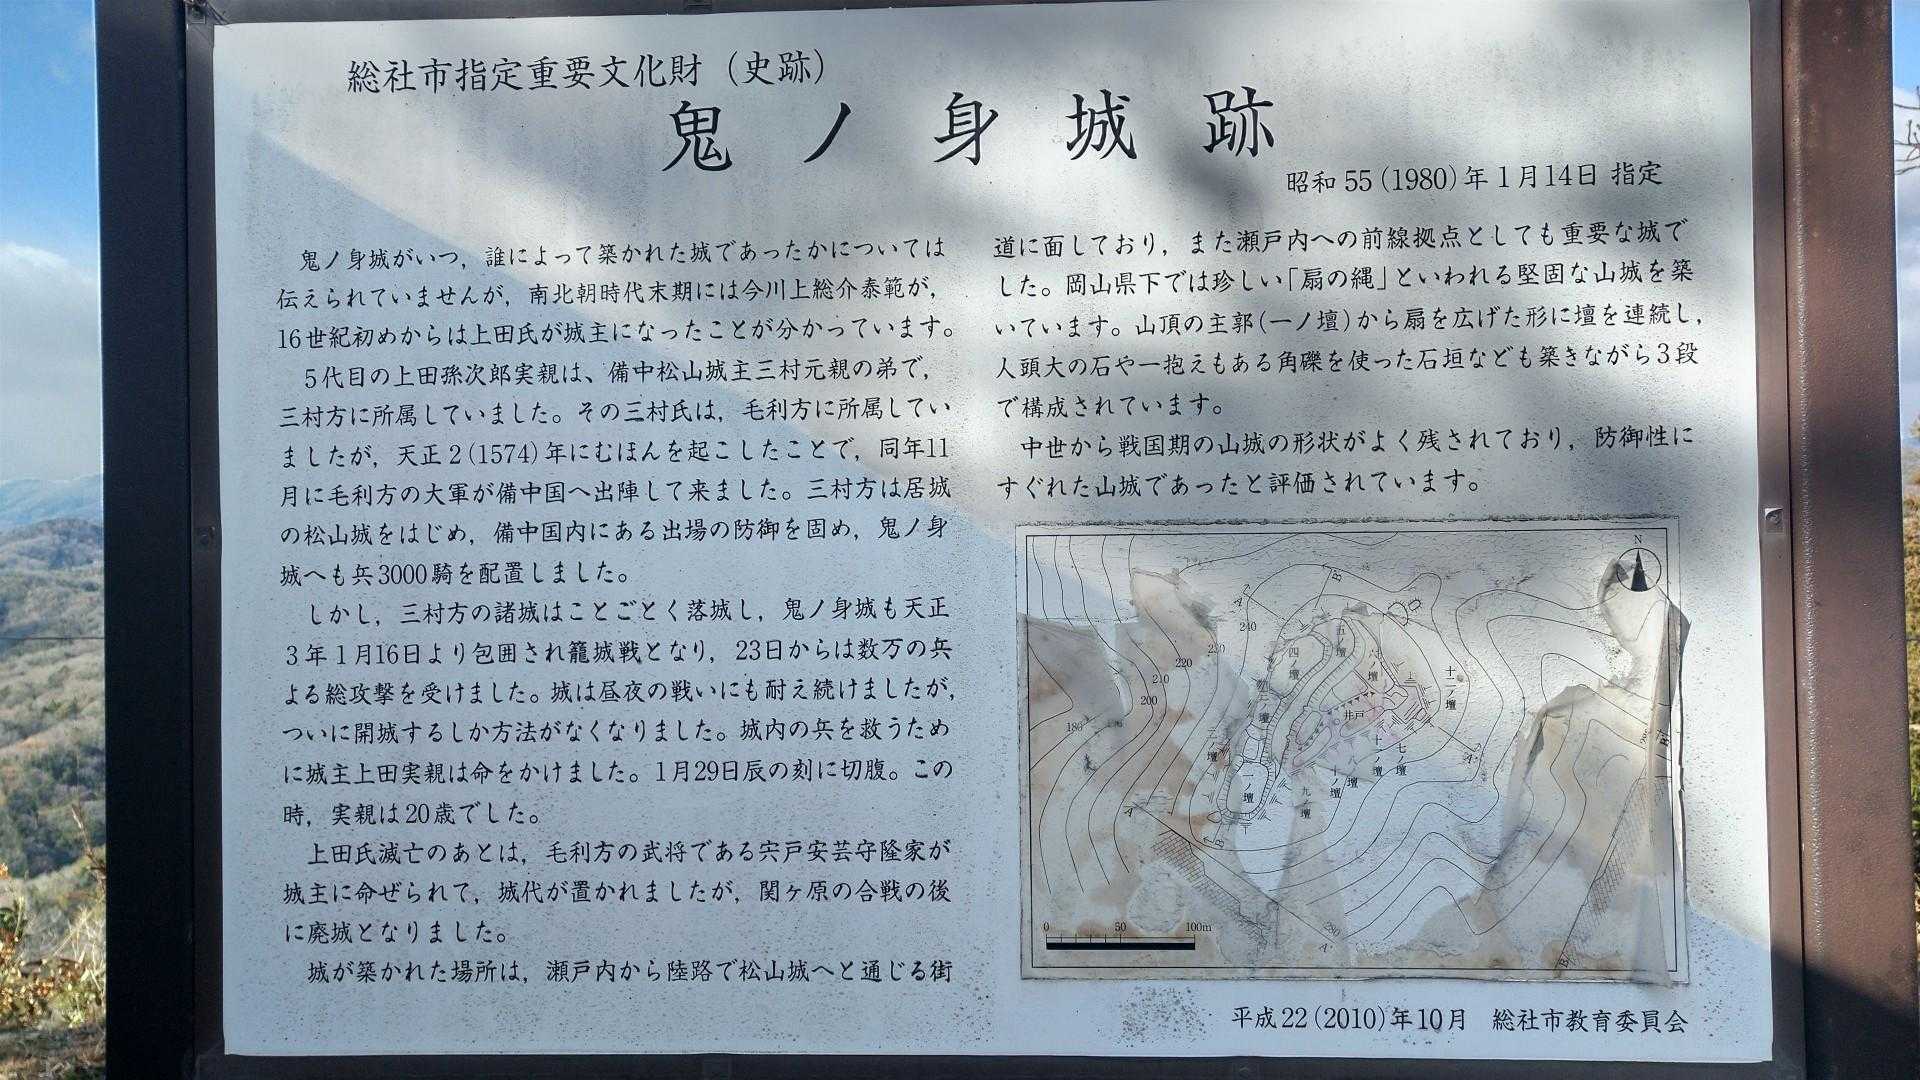 総社市指定重要文化財（史跡）
鬼ノ身城跡
昭和55（1980）年1月14日 指定
鬼ノ身城がいつ，誰によって築かれた城であったかについては
伝えられていませんが，南北朝時代末期には今川上総介泰範が，
16世紀初めからは上田氏が城主になったことが分かっています。
5代目の上田孫次郎実親は、備中松山城主三村元親の弟で，
三村方に所属していました。その三村氏は，毛利方に所属してい
ましたが，天正2（1574）年にむほんを起こしたことで，同年11
月に毛利方の大軍が備中国へ出陣して来ました。三村方は居城
の松山城をはじめ，備中国内にある出場の防御を固め，鬼ノ身
城へも兵3000騎を配置しました。
しかし，三村方の諸城はことごとく落城し，鬼ノ身城も天正
3年1月16日より包囲され籠城戦となり，23日からは数万の兵
よる総攻撃を受けました。城は昼夜の戦いにも耐え続けましたが，
ついに開城するしか方法がなくなりました。城内の兵を救うため
に城主上田実親は命をかけました。1月29日辰の刻に切腹。この
時，実親は20歳でした。
上田氏滅亡のあとは，毛利方の武将である宍戸安芸守隆家が
城主に命ぜられて，城代が置かれましたが，関ヶ原の合戦の後
に廃城となりました。
城が築かれた場所は，瀬戸内から陸路で松山城へと通じる街
道に面しており，また瀬戸内への前線拠点としても重要な城で
した。岡山県下では珍しい「扇の縄」といわれる堅固な山城を築
いています。山頂の主郭（一ノ壇）から扇を広げた形に壇を連続し，
人頭大の石や一抱えもある角礫を使った石垣なども築きながら3段
で構成されています。
中世から戦国期の山城の形状がよく残されており，防御性に
すぐれた山城であったと評価されています。
N
B'
A'
240
230
220
210
200
180
五ノ壇
四ノ壇
六ノ壇
十二ノ壇
三ノ壇
井戸
二ノ壇
七ノ壇
十一ノ壇
八ノ壇
十ノ壇
一ノ壇
九ノ壇
A
B
0 50 100m
平成22（2010）年10月 総社市教育委員会